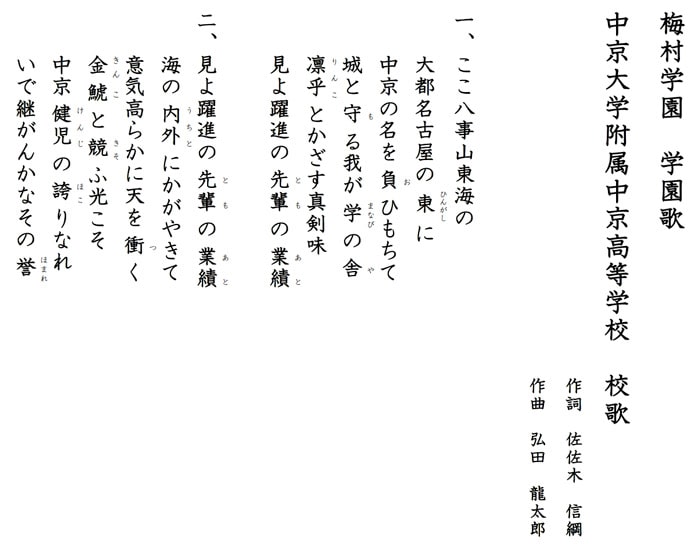 梅村学園　学園歌
中京大学附属中京高等学校　校歌
作詞　佐佐木　信綱
作曲　弘田　龍太郎
一、ここ八事山東海の
大都名古屋の東に
中京の名を負ひもちて
城と守る我が学の舎
凛乎とかざす真剣味
見よ躍進の先輩の業績
二、見よ躍進の先輩の業績
海の内外にかがやきて
意気高らかに天を衝く
金鯱と競ふ光こそ
中京健児の誇りなれ
いで継がんかなその誉